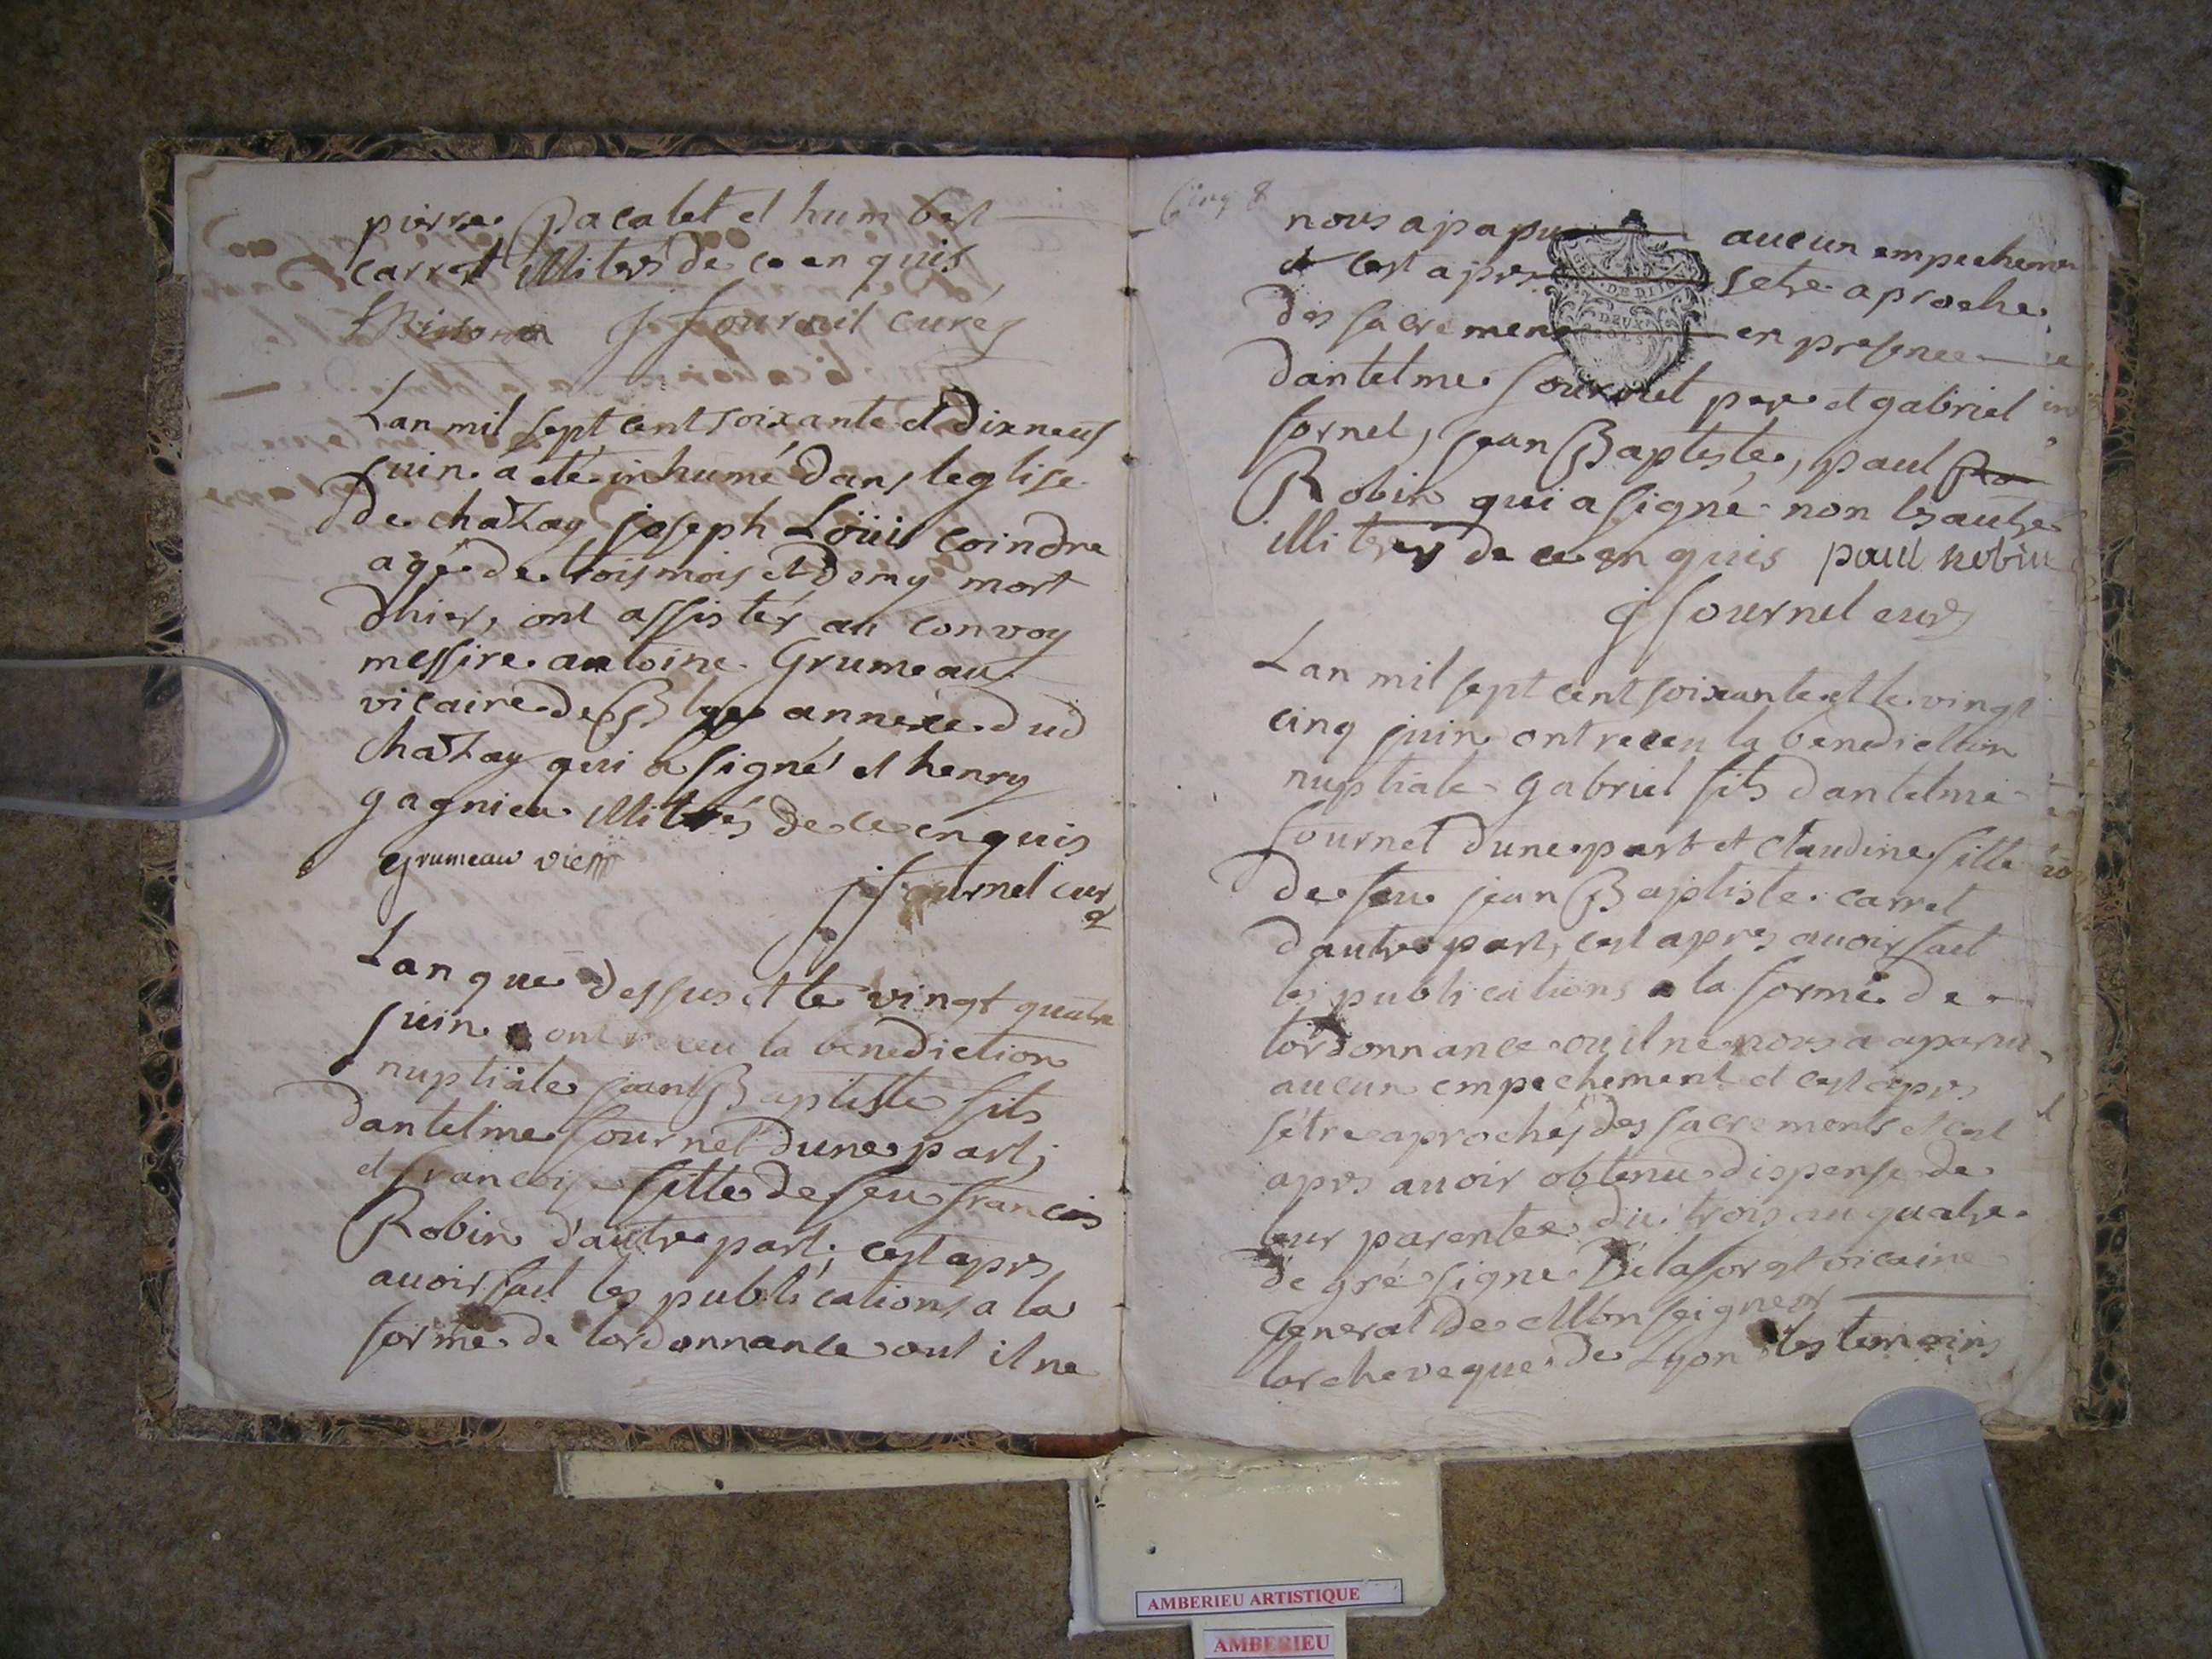 pierre pacalet et humbert
carret illiterés de ce enquis
j fournel curé
Lan mil sept cent soixante et dixneuf
juin. a été inhumé dans leglise
de chatlay joseph Loüis Coindre
agé de trois mois et demy mort
dhier, ont assistér au convoy
messire antoine Grumeau
vicaire de annexe dud
chatlay qui a signé et henry
gagnieu illiterés de ce enquis
Grumeau vic
j fournel cur
Lan que dessus et le vingt quatre
juin ont receu la benediction
nuptiale jean Baptiste fils
dantelme fournel dune part;
et francoise fille de feu francois
Robin d'autre part; cest apres
avoir fait les publications a la
forme de lordonnance out il ne
Cinq 8
nous a papu aucun empechemen
et cest apres setre aproche
des sacremens en presence
GEN. DE DIJON
DEUX SOLS
dantelme fournel pere et gabriel
fornel, jean Baptiste, paul Ro
Robin qui a signé non les autres
illiterés de ce enquis paul Robin
j fournel curé
Lan mil sept cent soixante et le vingt
cinq juin ont receu la benediction
nuptiale gabriel fils dantelme
fournel dune part et Claudine fille
de feu jean Baptiste carret
dautre part, cest apres avoir fait
les publications a la forme de
lordonnance ou il ne nous a aparu
aucun empechement et cest apres
sétre aprochés des sacrements et cest
apres avoir obtenu dispense de
leur parentee du trois au quatre
de gré signe Délaforgt vicaine
General de Monseigneur
larcheveque de Lyon les temoins
AMBERIEU ARTISTIQUE
AMBERIEU